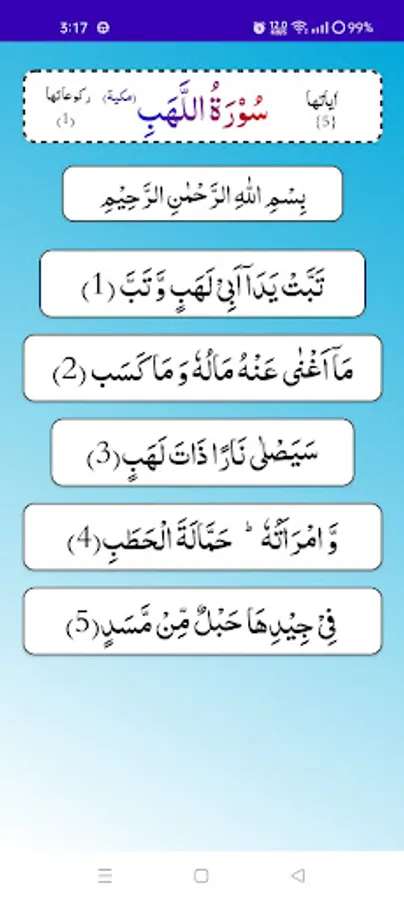 3:17 12.0 KB/S 99%
اٰیاتہا سُوْرَةُ اللَّهَبِ (مکیة) رکوعاتہا
(5) (1)
بِسْمِ اللهِ الرَّحْمٰنِ الرَّحِيْمِ
تَبَّتْ يَدَاۤ اَبِىْ لَهَبٍ وَّ تَبَّ (1)
مَاۤ اَغْنٰى عَنْهُ مَالُهٗ وَ مَا كَسَب (2)
سَيَصْلٰى نَارًا ذَاتَ لَهَبٍ (3)
وَّ امْرَاَتُهٗ ؕ حَمَّالَةَ الْحَطَبِ (4)
فِىْ جِيْدِهَا حَبْلٌ مِّنْ مَّسَدٍ (5)